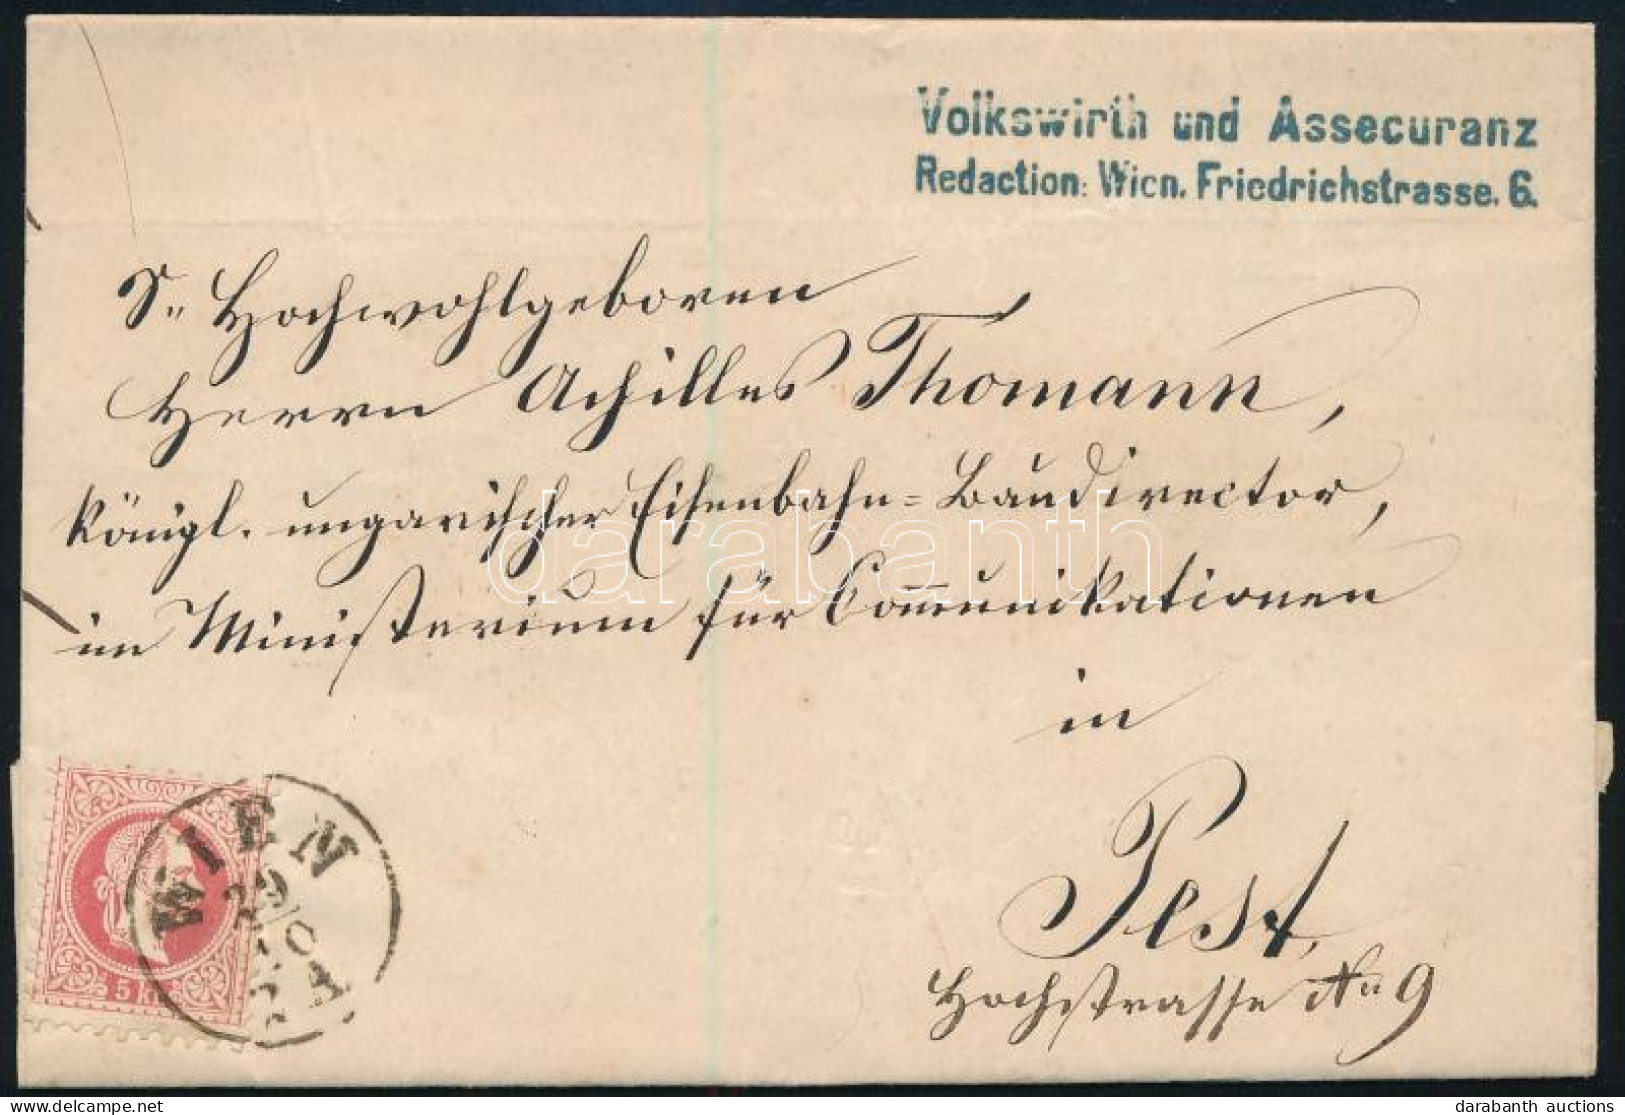 Volkswirth und Assecuranz
Redaction: Wien. Friedrichstrasse. 6.
Sr. Hochwohlgeboren
Herrn Achilles Thomann,
Königl. ungarischer Eisenbahn=Baudirector,
im Ministerium für Com̄unikationen
in
Pest,
Hochstrasse No 9
WIEN
5 kr
darabanth
darabanth auctions